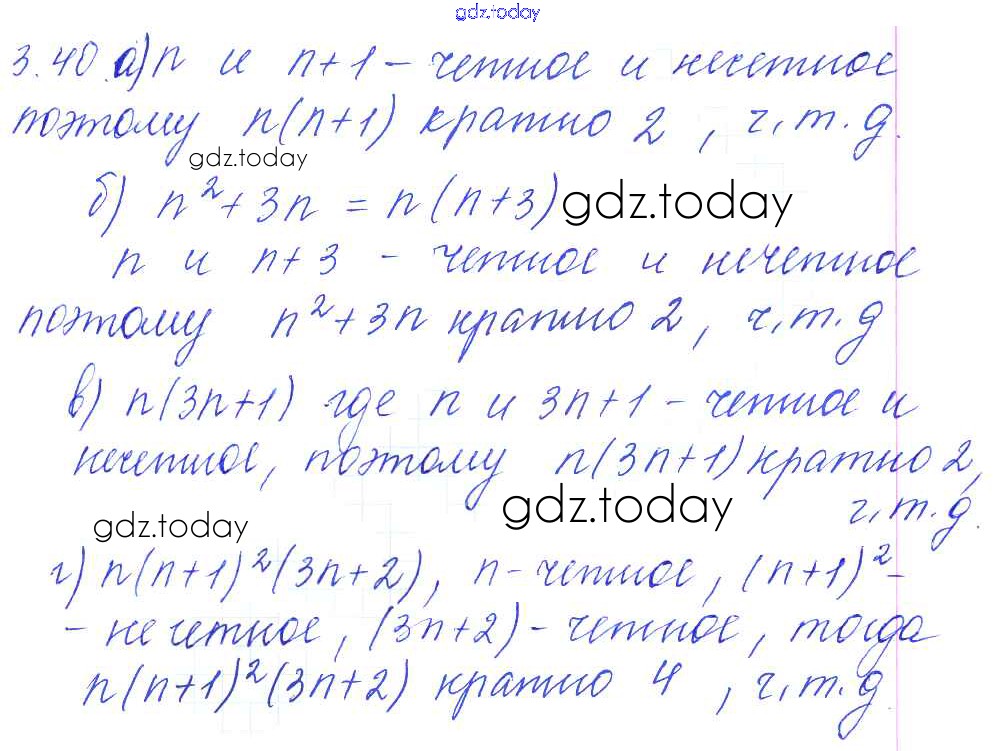 gdz.today
3.40. а) n и n+1 – четное и нечетное
поэтому n(n+1) кратно 2, ч.т.д.
gdz.today
б) n²+3n = n(n+3) gdz.today
n и n+3 – четное и нечетное
поэтому n²+3n кратно 2, ч.т.д
в) n(3n+1) где n и 3n+1 – четное и
нечетное, поэтому n(3n+1) кратно 2,
gdz.today gdz.today ч.т.д.
г) n(n+1)²(3n+2), n – четное, (n+1)² –
– нечетное, (3n+2) – четное, тогда
n(n+1)²(3n+2) кратно 4, ч.т.д